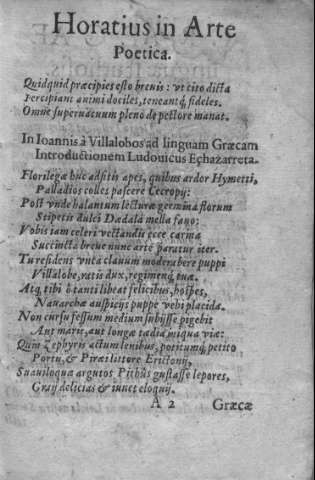 Horatius in Arte
Poetica.
Quidquid præcipies esto breuis: vt cito dicta
Percipiant animi dociles, teneantq́; fideles.
Omne superuacuum pleno de pectore manat.
In Ioannis à Villalobos ad linguam Græcam
Introductionem Ludouicus Eçhazarreta.
Florilegæ huc adsitis apes, quibus ardor Hymetti,
Palladios colles pascere Cecropij:
Post vnde halantum lectura germina florum
Scipetis dulci Dædala mella fauo:
Vobis iam celeri vectandis ecce carina
Succincta breue nunc arte paratur iter.
Tu residens vnca clauum moderabere puppi
Villalobe, ratis dux, regimenq́; tuæ.
Atq; tibi ò tanti libeat felicibus, hospes,
Nauarchæ auspicijs puppe vehi placida.
Non cursu fessum medium subijsse pigebit
Aut maris, aut longæ tædia iniqua viæ:
Quin Zephyris actum lenibus, potitumq́; petito
Portu, & Piræi littore Erictonij,
Suauiloqua argutos Pithûs gustasse lepores,
Graij delicias & iuuet eloquij.
A 2 Græcæ